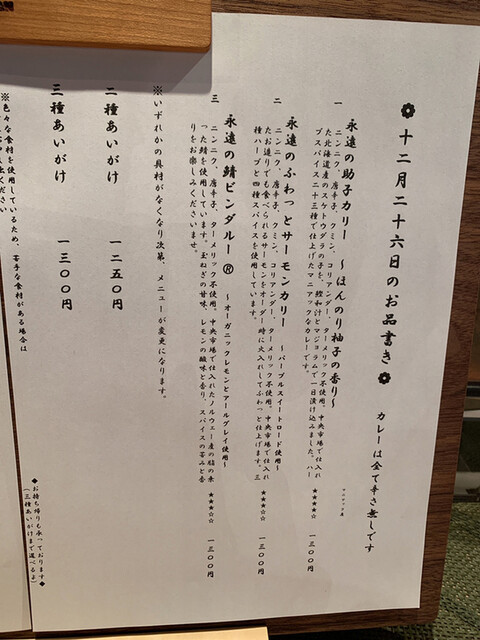 ❁ 十二月二十六日のお品書き ❁
カレーは全て辛さ無しです
一 永遠の助子カリー ～ほんのり柚子の香り～
ニンニク、唐辛子、クミン、コリアンダー、ターメリック不使用。中央市場で仕入れ
た北海道産のスケトウダラの子を、鰹和汁とマジョラムで一日漬け込みました。ハー
ブスパイス二十三種で仕上げたマニアックなカレーです。
マニアック度
★★★★☆ 一三〇〇円
二 永遠のふわっとサーモンカリー ～パープルスイートロード使用～
ニンニク、唐辛子、クミン、コリアンダー、ターメリック不使用。中央市場で仕入れ
たお造りでも食べられるサーモンをオーダー時に火入れしてふわっと仕上げます。三
種ハーブと四種スパイスを使用しています。
★★★☆☆ 一三〇〇円
三 永遠の鯖ビンダルー ® ～オーガニックレモンとアールグレイ使用～
ニンニク、唐辛子、ターメリック不使用。中央市場で仕入れたノルウェー産の脂の乗
った鯖を使用しています。玉ねぎの甘味、レモンの酸味と香り、スパイスの苦みと香
りをお楽しみくださいませ。
★★★★☆ 一三〇〇円
※いずれかの具材がなくなり次第、メニューが変更になります。
二種あいがけ 一二五〇円
三種あいがけ 一三〇〇円
◆お持ち帰りも承っております◆
（三種あいがけまで選べるよ）
※色々な食材を使用しているため、苦手な食材がある場合は